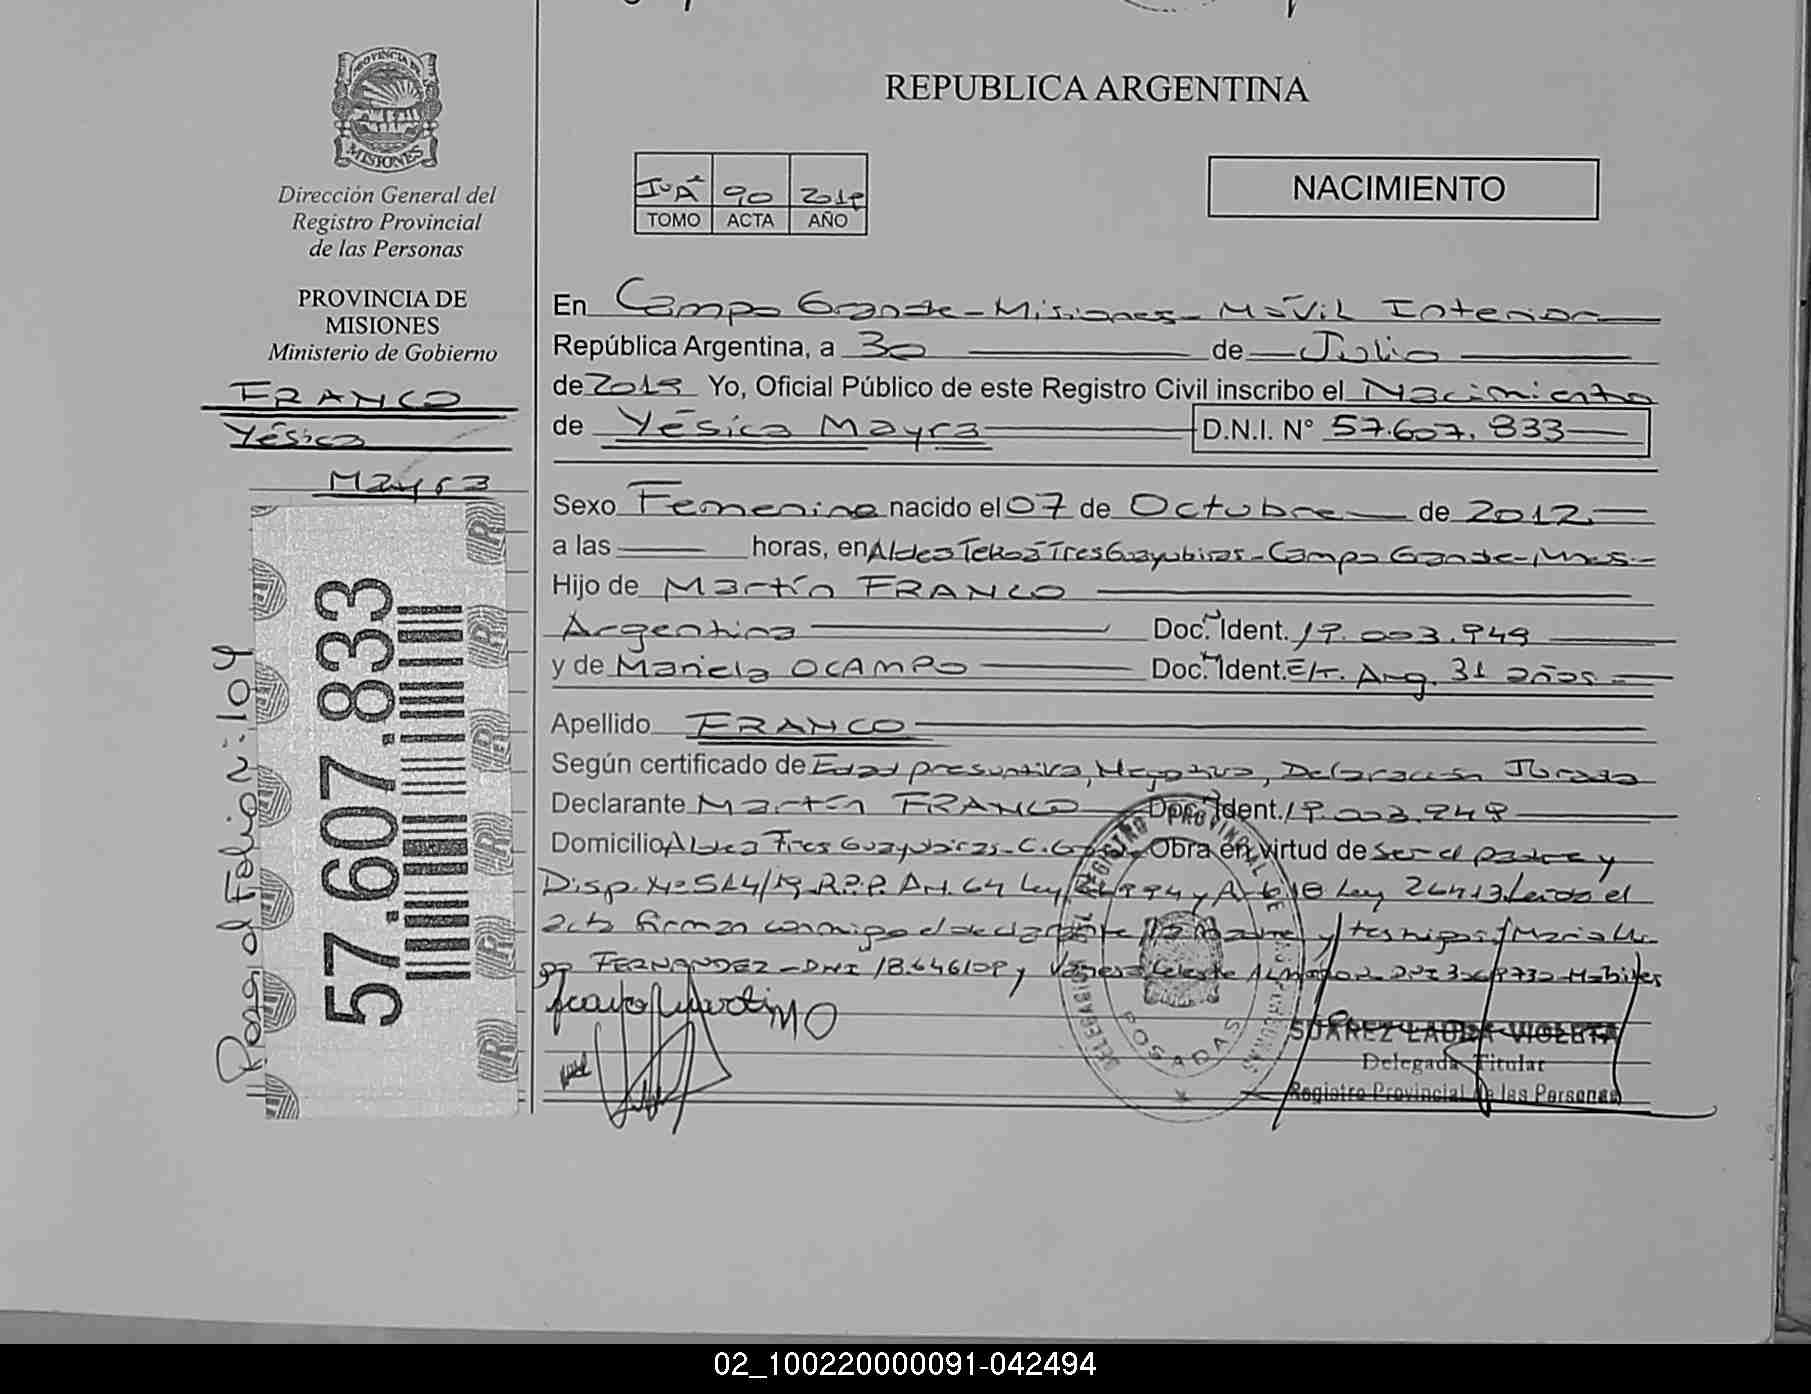 REPUBLICA ARGENTINA
PROVINCIA DE
MISIONES
Dirección General del
Registro Provincial
de las Personas
PROVINCIA DE
MISIONES
Ministerio de Gobierno
FRANCO
Yésica
Mayra
57.607.833
Pasa al Folio N: 104
90 2019
TOMO ACTA AÑO
NACIMIENTO
En Campo Grande - Misiones - Móvil Interior
República Argentina, a 30 de Julio
de 2019 Yo, Oficial Público de este Registro Civil inscribo el Nacimiento
de Yésica Mayra D.N.I. N° 57.607.833
Sexo Femenino nacido el 07 de Octubre de 2012
a las horas, en Aldea Tekoa Tres Guayubiras - Campo Grande - Mnes -
Hijo de Martín FRANCO
Argentina Doc. Ident. 19.003.949
y de Mariela OCAMPO Doc. Ident. Arg. 31 años
Apellido FRANCO
Según certificado de Edad presuntiva, Negativa, Declaración Jurada
Declarante Martín FRANCO Doc. Ident. 19.003.949
Domicilio Aldea Tres Guayubiras - C. Obra en virtud de ser el padre y
Disp. N° 514/19 R.P.P. Art. 64 Ley y Ley 26413. Leído el
acta firman conmigo el declarante la madre y testigos: María
FERNANDEZ - DNI y Vanesa Celeste DNI Hábiles
SUAREZ LAURA VIOLETA
Delegada Titular
Registro Provincial de las Personas
REGISTRO PROVINCIAL DE LAS PERSONAS
POSADAS
02_100220000091-042494